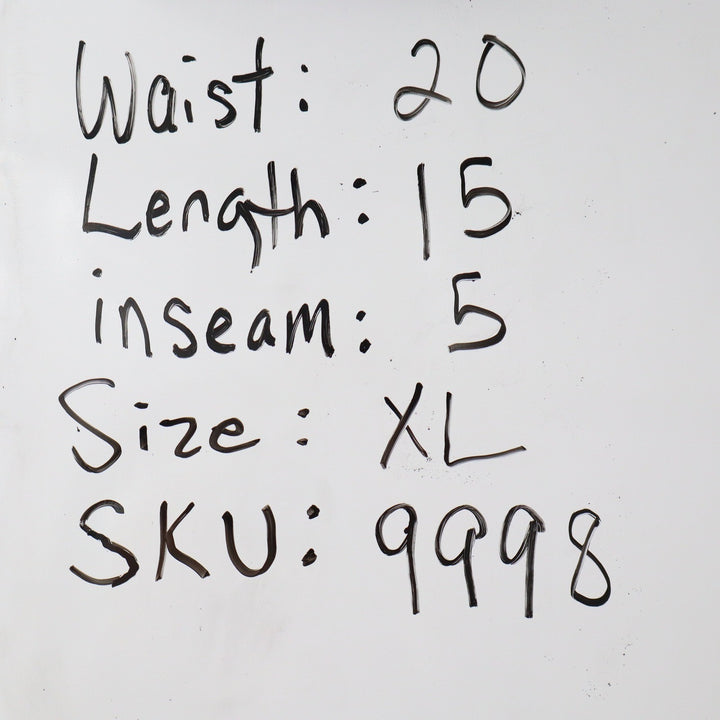 Waist: 20
Length: 15
inseam: 5
Size: XL
SKU: 9998